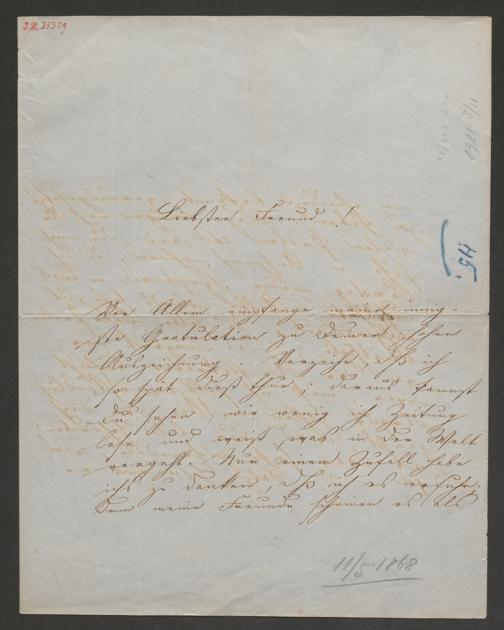 I.N. 35329
11/5 1868
45.
Liebster Freund!
Vor Allem empfange meine innig-
ste Gratulation zu Deiner hohen
Auszeichnung. Verzeihe, daß ich
so spät dieß thue; daraus kannst
Du sehen, wie wenig ich Zeitung
lese und weiß, was in der Welt
vorgeht. Nur einem Zufall habe
ich's zu danken, daß ich es erfuhr.
Denn meine Freunde scheinen es als
11/5 1868